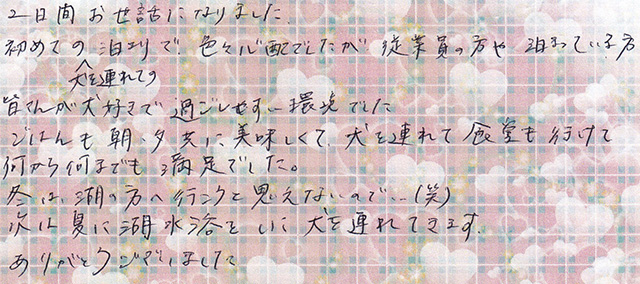 2日間お世話になりました.
初めての泊まりで色々心配でしたが従業員の方や泊まっている方
犬を連れての
皆さんが犬好きで過ごしやすい環境でした
ごはんも朝・夕共に美味しくて、犬を連れて食堂も行けて
何から何までも満足でした。
冬は、湖の方へ行こうと思えないので…(笑)
次は夏に湖水浴をしに犬を連れてきます.
ありがとうございました